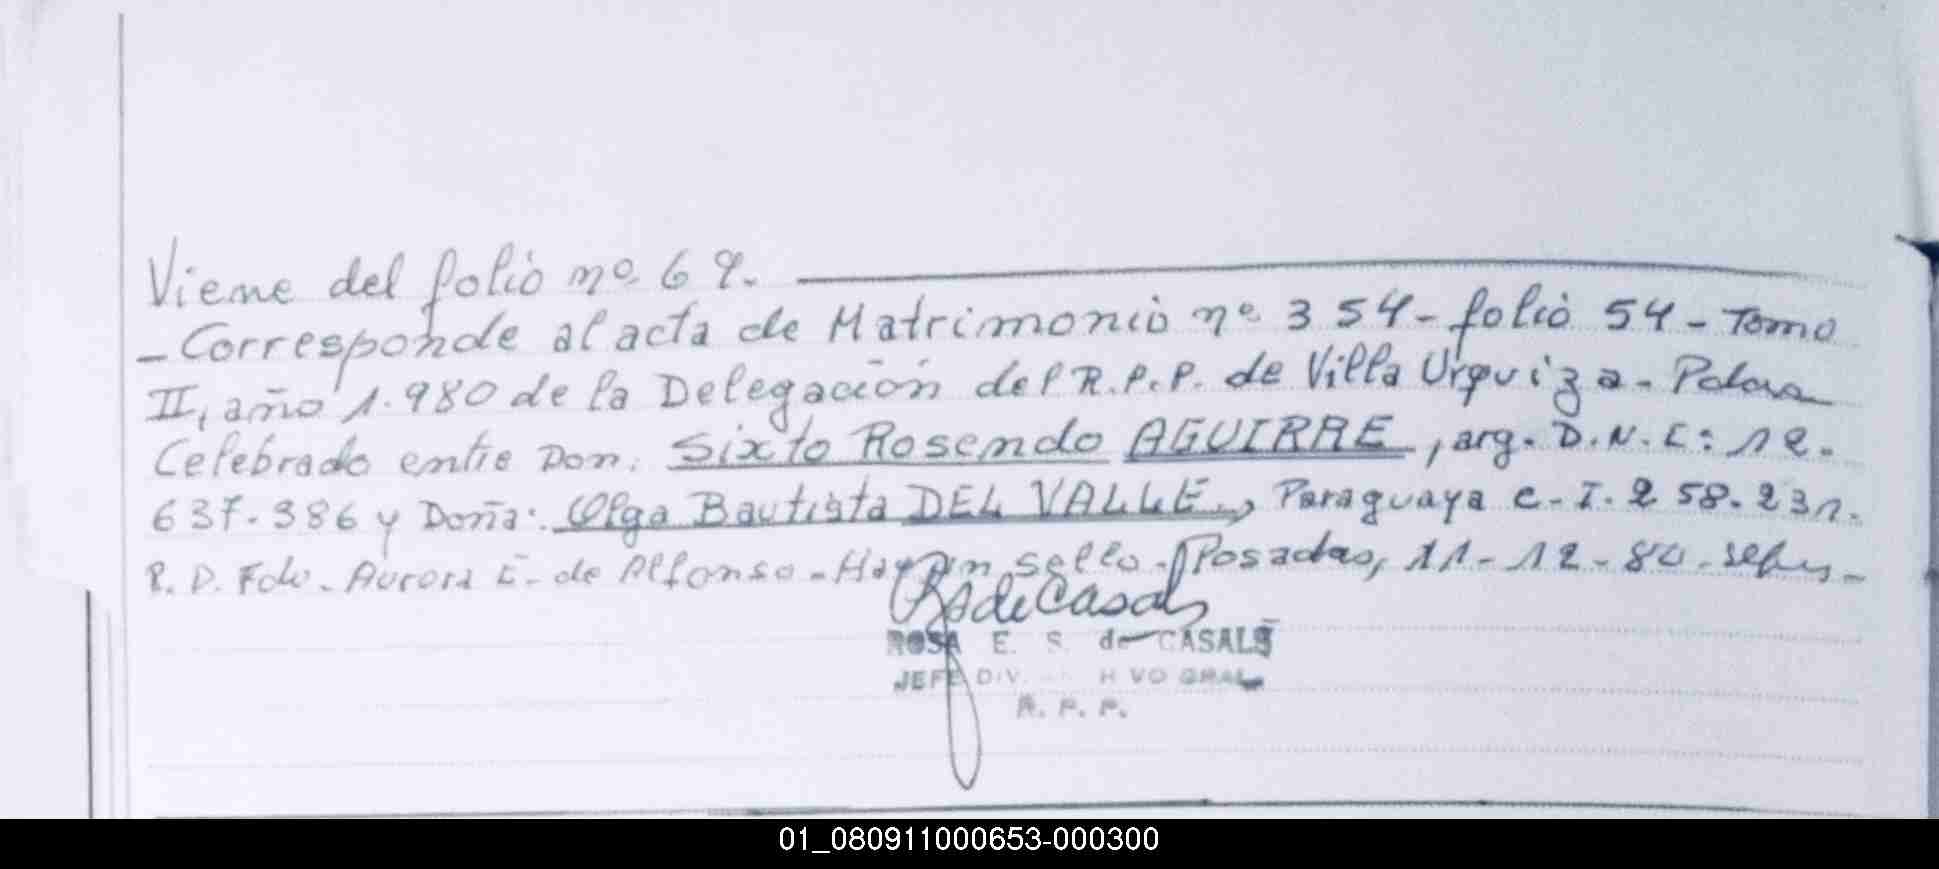 Viene del folio nº 69.
- Corresponde al acta de Matrimonio nº 354 - folio 54 - Tomo
II, año 1.980 de la Delegación del R.P.P. de Villa Urquiza - Pdas
Celebrado entre Don: Sixto Rosendo AGUIRRE, arg. D.N.I: 12.
637.386 y Doña: Olga Bautista DEL VALLE, Paraguaya C.I. 258.231.
R.D. Fdo. Aurora E. de Alfonso - Hay un sello. Posadas, 11-12-80.
RSdeCasals
ROSA E. S. de CASALS
JEFE DIV. GRAL
R. P. P.
01_080911000653-000300